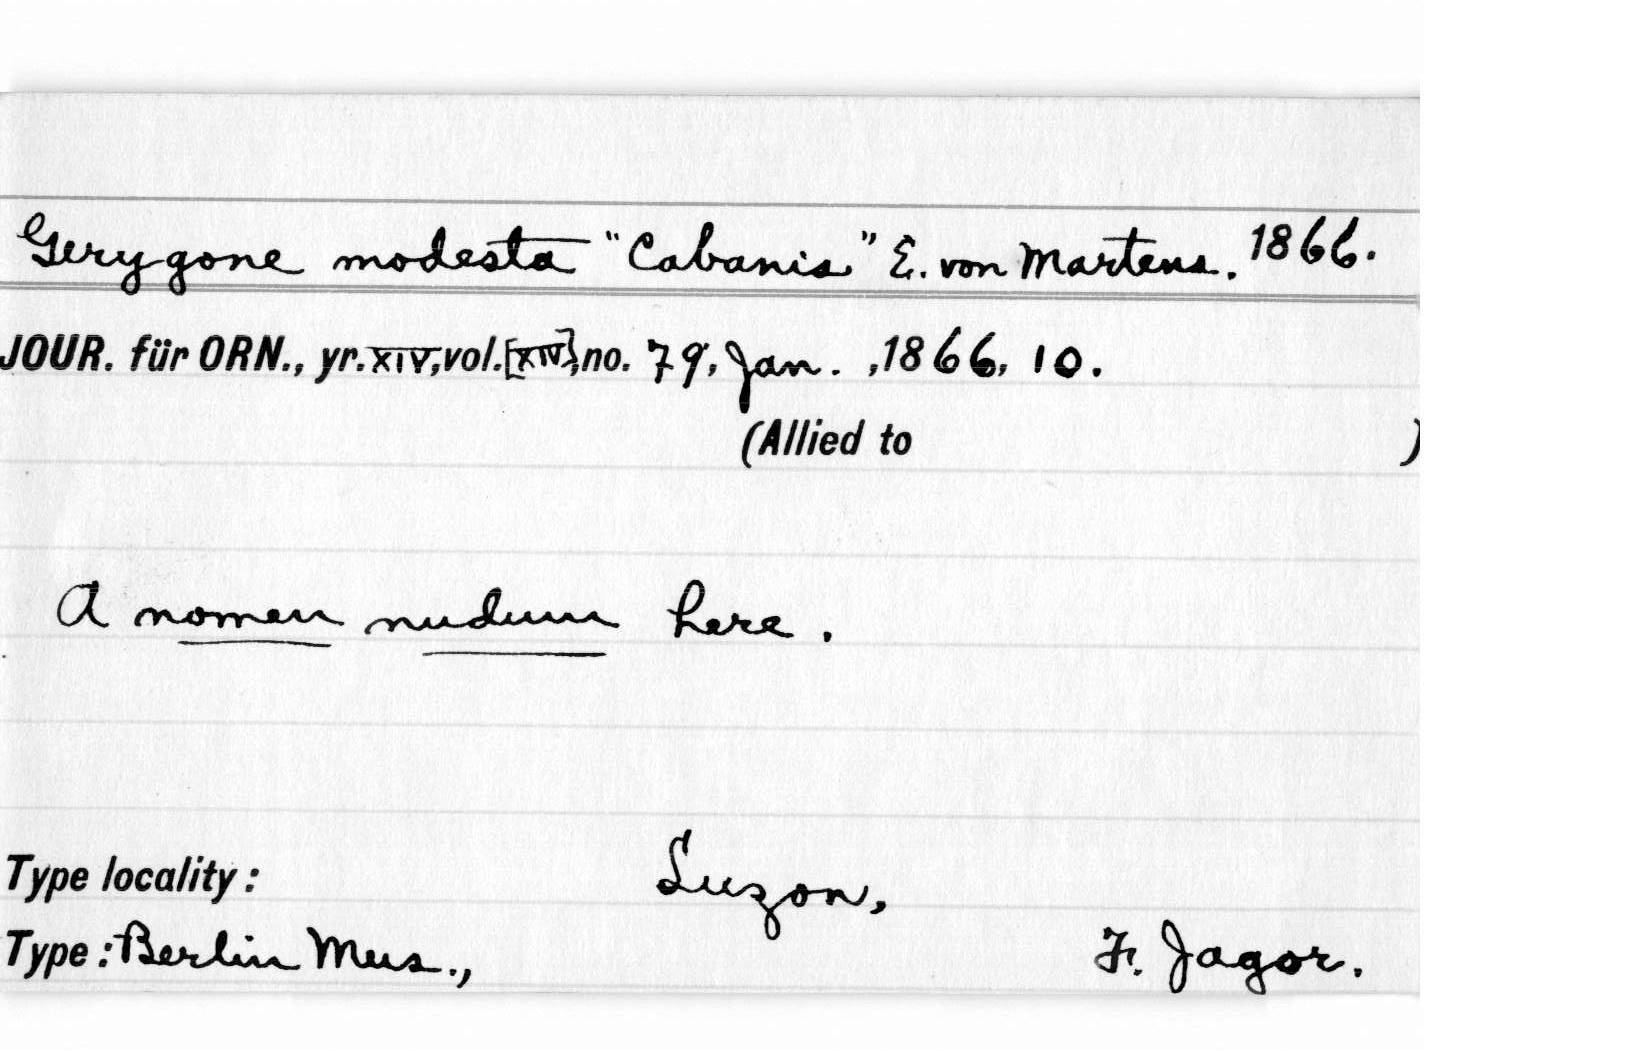 Gerygone modesta "Cabanis" E. von Martens. 1866.
JOUR. für ORN., yr. XIV, vol. [XIV], no. 79, Jan. , 1866, 10.
(Allied to )
A nomen nudum here.
Type locality: Luzon,
Type: Berlin Mus., F. Jagor.